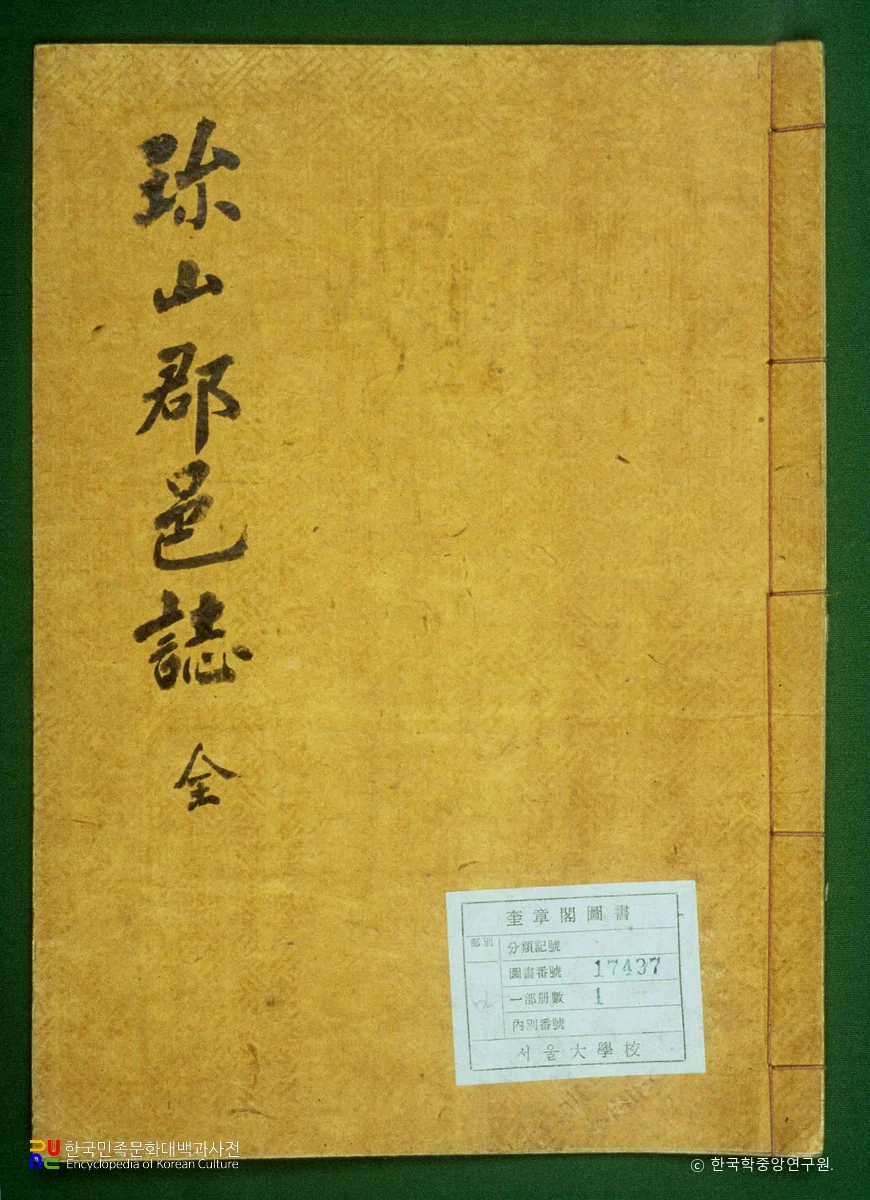 珎山郡邑誌 全
奎章閣圖書
部別
分類記號
圖書番號 17437
一部册數 1
內別番號
서울大學校
한국민족문화대백과사전
Encyclopedia of Korean Culture
© 한국학중앙연구원.